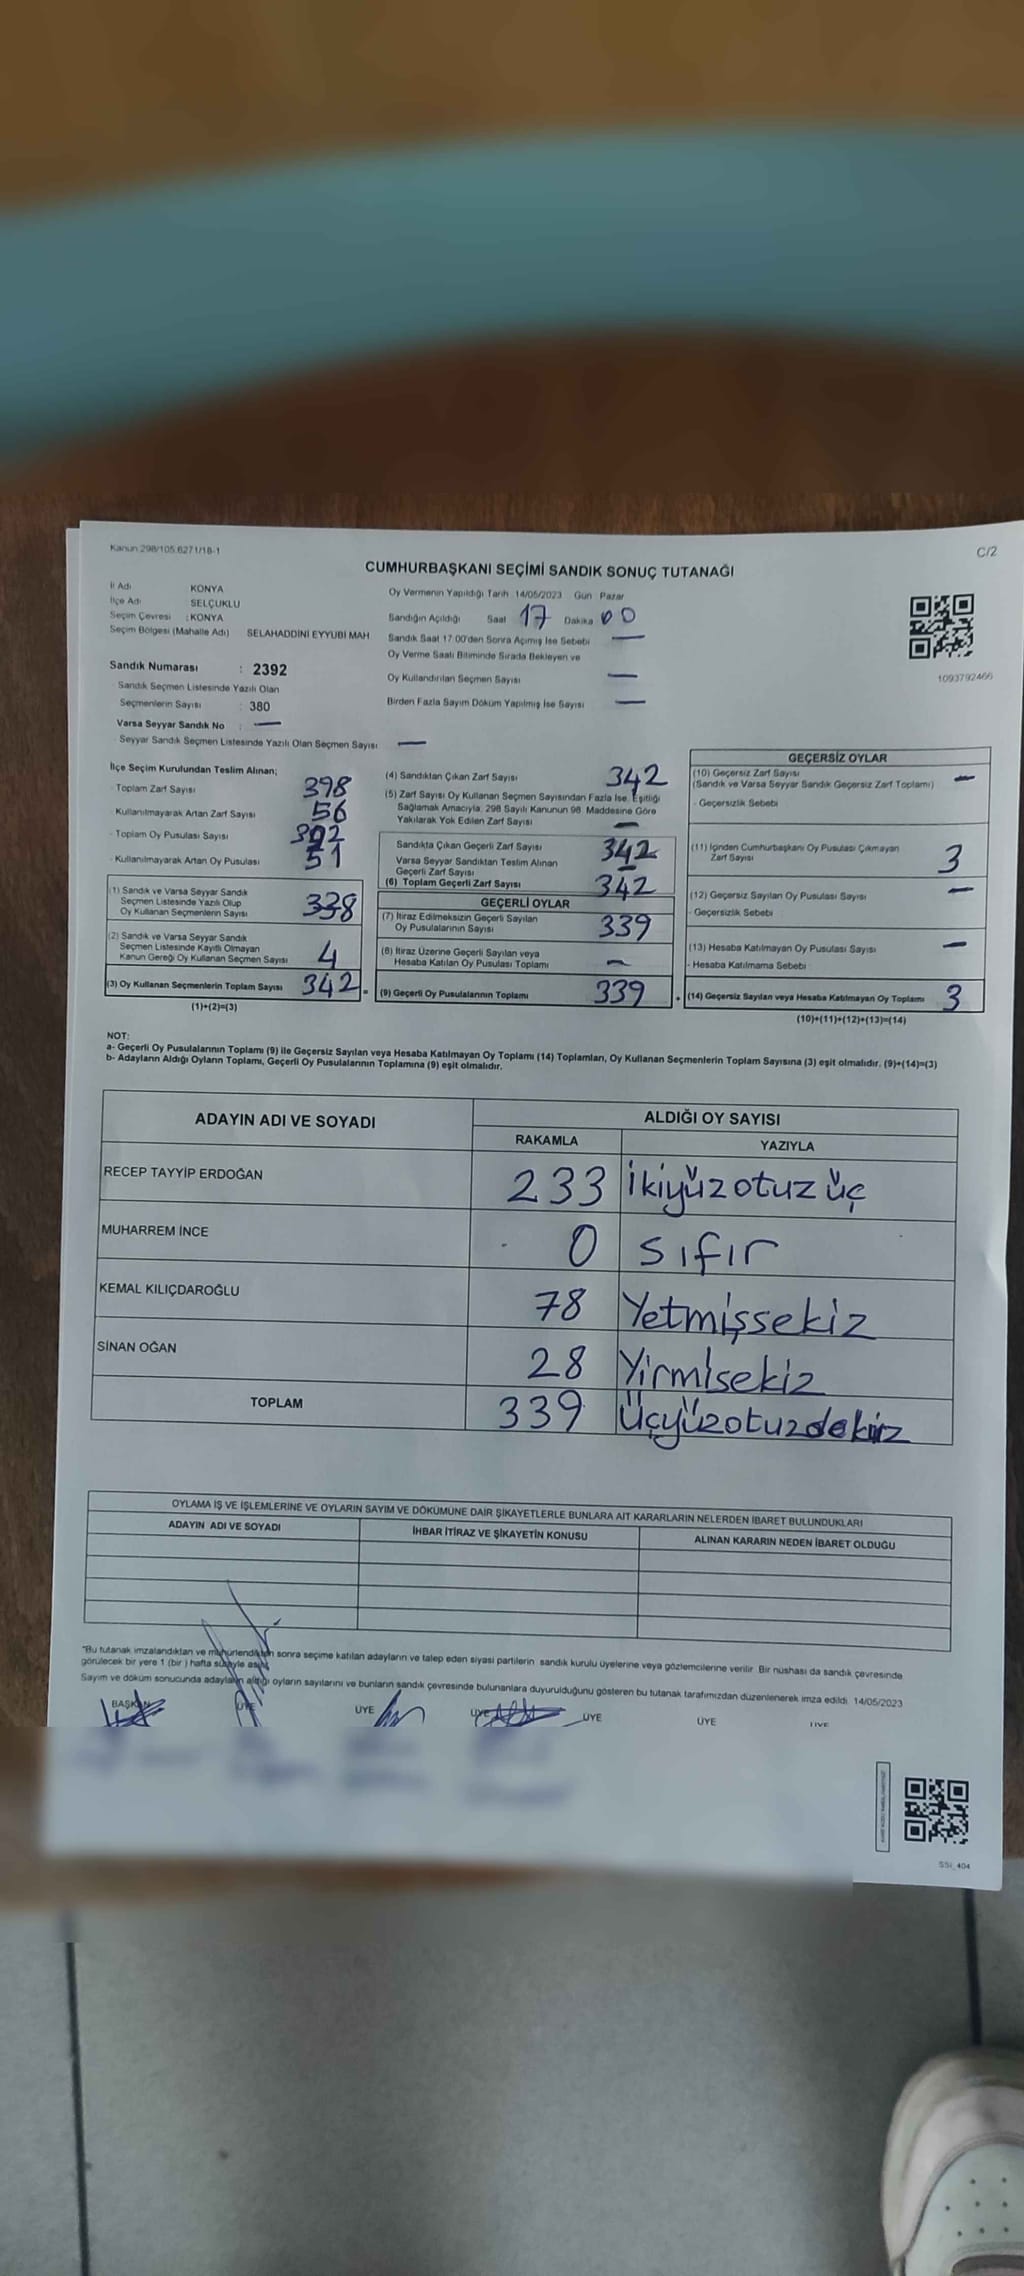 Kanun 298/105.6271/18-1
C/2
CUMHURBAŞKANI SEÇİMİ SANDIK SONUÇ TUTANAĞI
İl Adı KONYA
İlçe Adı SELÇUKLU
Seçim Çevresi : KONYA
Seçim Bölgesi (Mahalle Adı) SELAHADDİNİ EYYUBİ MAH
Sandık Numarası : 2392
Sandık Seçmen Listesinde Yazılı Olan
Seçmenlerin Sayısı : 380
Varsa Seyyar Sandık No : —
Seyyar Sandık Seçmen Listesinde Yazılı Olan Seçmen Sayısı —
Oy Vermenin Yapıldığı Tarih 14/05/2023 Gün Pazar
Sandığın Açıldığı Saat 17 Dakika 00
Sandık Saat 17.00'den Sonra Açımış İse Sebebi —
Oy Verme Saati Bitiminde Sırada Bekleyen ve
Oy Kullandırılan Seçmen Sayısı —
Birden Fazla Sayım Döküm Yapılmış İse Sayısı —
1093792466
İlçe Seçim Kurulundan Teslim Alınan;
- Toplam Zarf Sayısı 398
- Kullanılmayarak Artan Zarf Sayısı 56
- Toplam Oy Pusulası Sayısı
- Kullanılmayarak Artan Oy Pusulası 51
(1) Sandık ve Varsa Seyyar Sandık
Seçmen Listesinde Yazılı Olup
Oy Kullanan Seçmenlerin Sayısı 338
(2) Sandık ve Varsa Seyyar Sandık
Seçmen Listesinde Kayıtlı Olmayan
Kanun Gereği Oy Kullanan Seçmen Sayısı 4
(3) Oy Kullanan Seçmenlerin Toplam Sayısı 342 =
(1)+(2)=(3)
(4) Sandıktan Çıkan Zarf Sayısı 342
(5) Zarf Sayısı Oy Kullanan Seçmen Sayısından Fazla İse, Eşitliği
Sağlamak Amacıyla, 298 Sayılı Kanunun 98. Maddesine Göre
Yakılarak Yok Edilen Zarf Sayısı —
Sandıkta Çıkan Geçerli Zarf Sayısı 342
Varsa Seyyar Sandıktan Teslim Alınan
Geçerli Zarf Sayısı —
(6) Toplam Geçerli Zarf Sayısı 342
GEÇERLİ OYLAR
(7) İtiraz Edilmeksizin Geçerli Sayılan
Oy Pusulalarının Sayısı 339
(8) İtiraz Üzerine Geçerli Sayılan veya
Hesaba Katılan Oy Pusulası Toplamı —
(9) Geçerli Oy Pusulalarının Toplamı 339 +
GEÇERSİZ OYLAR
(10) Geçersiz Zarf Sayısı
(Sandık ve Varsa Seyyar Sandık Geçersiz Zarf Toplamı) —
- Geçersizlik Sebebi
(11) İçinden Cumhurbaşkanı Oy Pusulası Çıkmayan
Zarf Sayısı 3
(12) Geçersiz Sayılan Oy Pusulası Sayısı —
- Geçersizlik Sebebi
(13) Hesaba Katılmayan Oy Pusulası Sayısı —
- Hesaba Katılmama Sebebi
(14) Geçersiz Sayılan veya Hesaba Katılmayan Oy Toplamı 3
(10)+(11)+(12)+(13)=(14)
NOT:
a- Geçerli Oy Pusulalarının Toplamı (9) ile Geçersiz Sayılan veya Hesaba Katılmayan Oy Toplamı (14) Toplamları, Oy Kullanan Seçmenlerin Toplam Sayısına (3) eşit olmalıdır. (9)+(14)=(3)
b- Adayların Aldığı Oyların Toplamı, Geçerli Oy Pusulalarının Toplamına (9) eşit olmalıdır.
ADAYIN ADI VE SOYADI ALDIĞI OY SAYISI
RAKAMLA YAZIYLA
RECEP TAYYİP ERDOĞAN 233 İkiyüzotuz üç
MUHARREM İNCE 0 sıfır
KEMAL KILIÇDAROĞLU 78 Yetmişsekiz
SİNAN OĞAN 28 Yirmisekiz
TOPLAM 339
OYLAMA İŞ VE İŞLEMLERİNE VE OYLARIN SAYIM VE DÖKÜMÜNE DAİR ŞİKAYETLERLE BUNLARA AİT KARARLARIN NELERDEN İBARET BULUNDUKLARI
ADAYIN ADI VE SOYADI İHBAR İTİRAZ VE ŞİKAYETİN KONUSU ALINAN KARARIN NEDEN İBARET OLDUĞU
"Bu tutanak imzalandıktan ve mühürlendikten sonra seçime katılan adayların ve talep eden siyasi partilerin sandık kurulu üyelerine veya gözlemcilerine verilir. Bir nüshası da sandık çevresinde
görülecek bir yere 1 (bir) hafta süreyle asılır.
Sayım ve döküm sonucunda adayların aldığı oyların sayılarını ve bunların sandık çevresinde bulunanlara duyurulduğunu gösteren bu tutanak tarafımızdan düzenlenerek imza edildi. 14/05/2023
BAŞKAN ÜYE ÜYE ÜYE ÜYE ÜYE ÜYE
SSİ_404